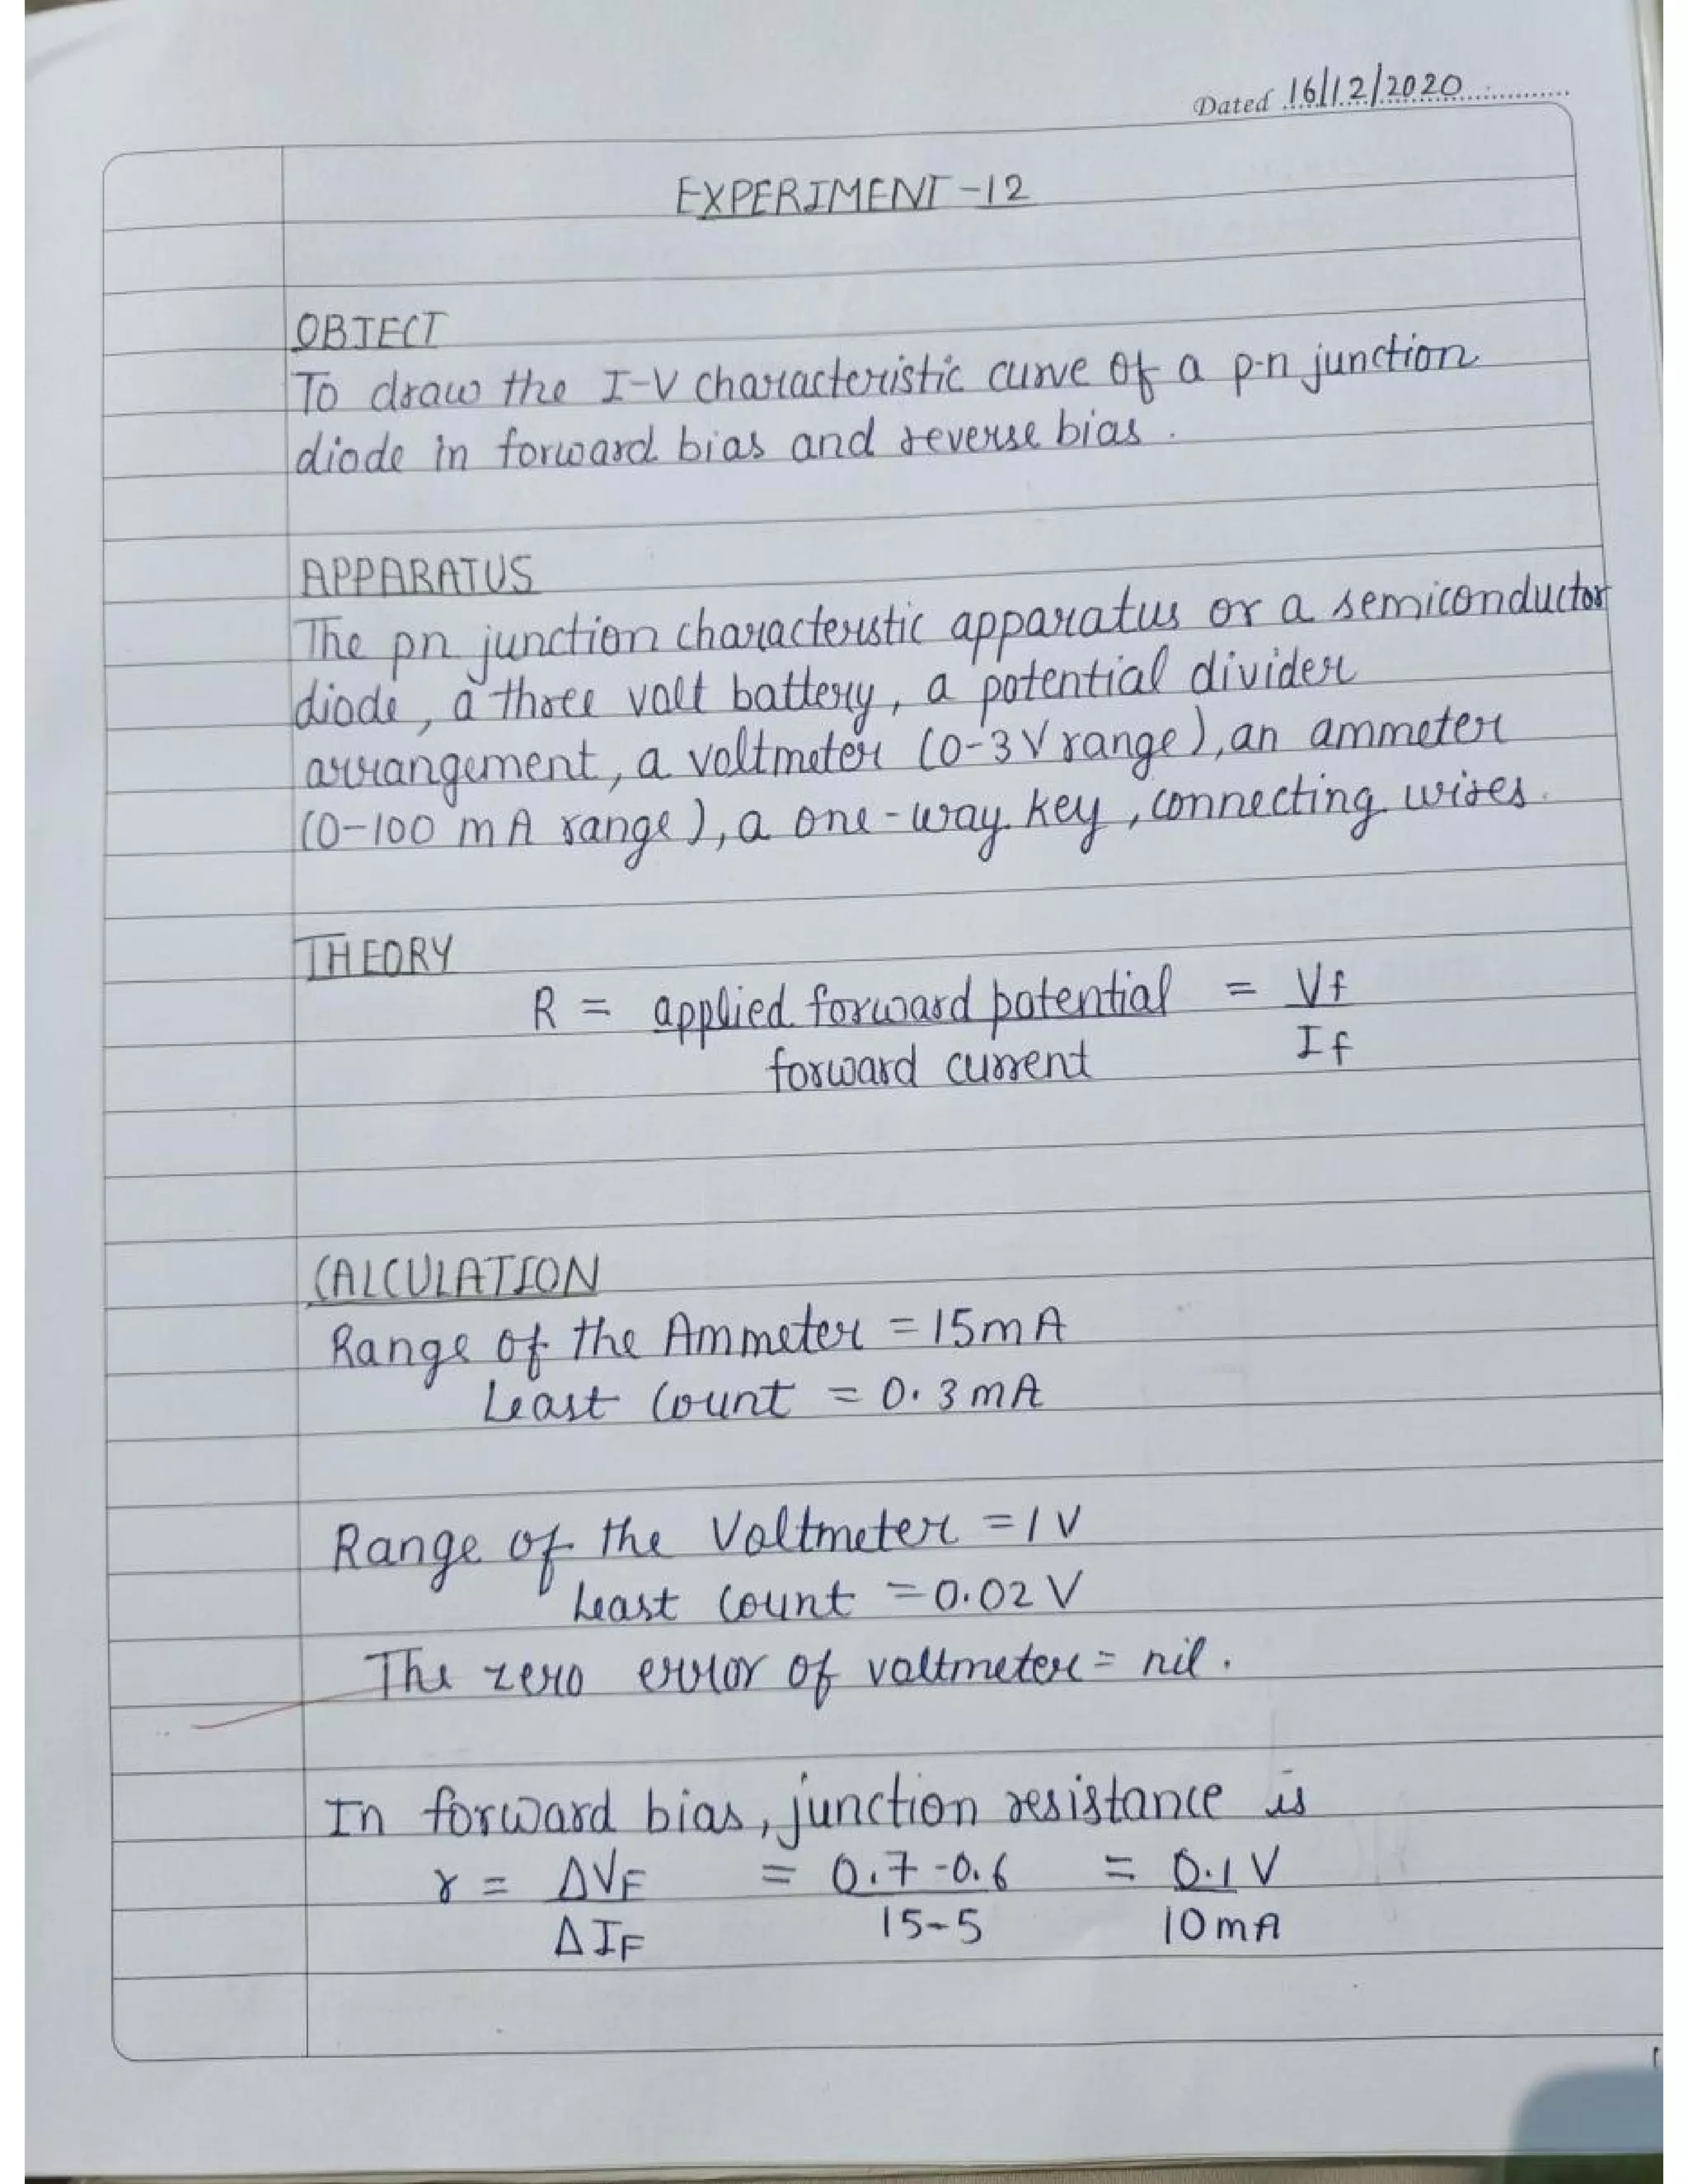 Dated 16/12/2020
EXPERIMENT-12
OBJECT
To draw the I-V characteristic curve of a p-n junction
diode in forward bias and reverse bias.
APPARATUS
The pn junction characteristic apparatus or a semiconductor
diode, a three volt battery, a potential divider
arrangement, a voltmeter (0-3V range), an ammeter
(0-100 mA range), a one-way key, connecting wires.
THEORY
R = applied forward potential = Vf
forward current If
CALCULATION
Range of the Ammeter = 15mA
Least Count = 0.3mA
Range of the Voltmeter = 1V
Least Count = 0.02V
The zero error of voltmeter = nil.
In forward bias, junction resistance is
r = ΔVF = 0.7-0.6 = 0.1V
ΔIF 15-5 10mA